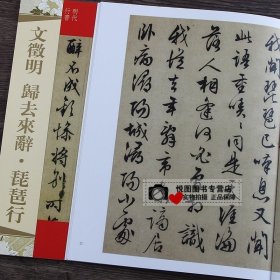 明代
行書
文徵明 歸去來辭·琵琶行
醉不成歡慘將別
我聞琵琶已嘆息又聞
此語重唧唧同是天涯淪
落人相逢何必曾相識
我從去年辭帝京謫居
臥病潯陽城潯陽小處
悦图图书专营店
实物拍摄 正品保障